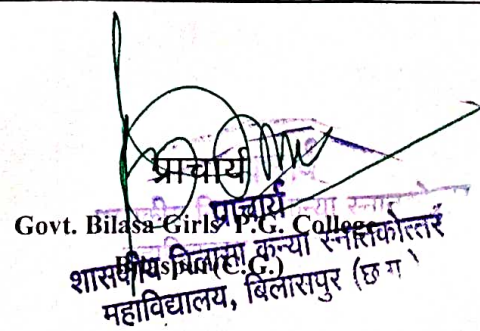 प्राचार्य
प्राचार्य
Govt. Bilasa Girls P.G. College
Bilaspur (C.G.)
शासकीय बिलासा कन्या स्नातकोत्तर
महाविद्यालय, बिलासपुर (छ ग )